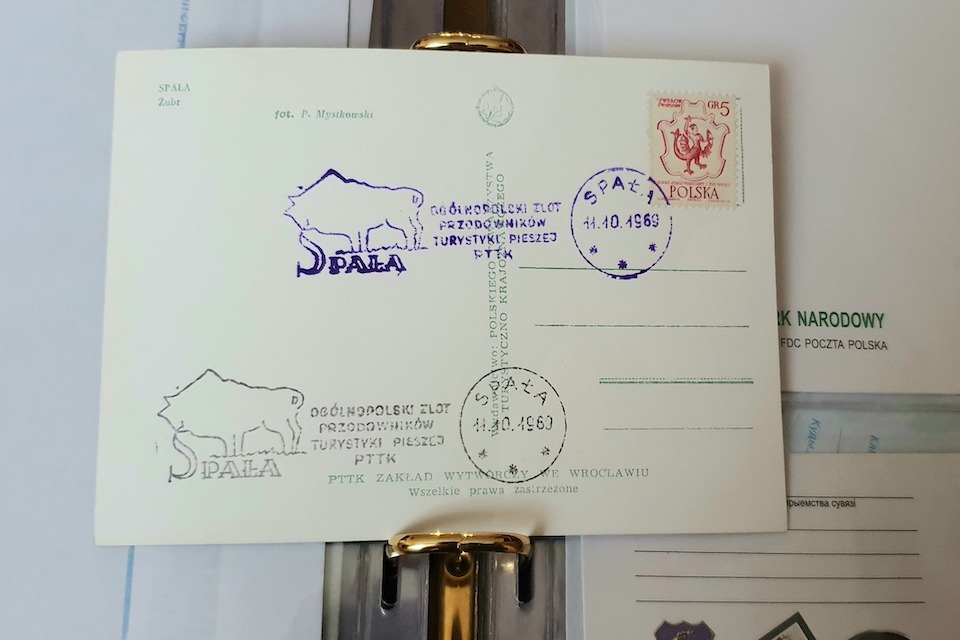 SPAŁA
Żubr
fot. P. Mystkowski
GR 5
POLSKA
SPAŁA
OGÓLNOPOLSKI ZLOT
PRZODOWNIKÓW
TURYSTYKI PIESZEJ
PTTK
SPAŁA
11.10.1969
Wydawnictwo: POLSKIEGO TOWARZYSTWA
TURYSTYCZNO KRAJOZNAWCZEGO
SPAŁA
OGÓLNOPOLSKI ZLOT
PRZODOWNIKÓW
TURYSTYKI PIESZEJ
PTTK
SPAŁA
11.10.1969
PTTK ZAKŁAD WYTWÓRCZY WE WROCŁAWIU
Wszelkie prawa zastrzeżone
RK NARODOWY
FDC POCZTA POLSKA
сувязі